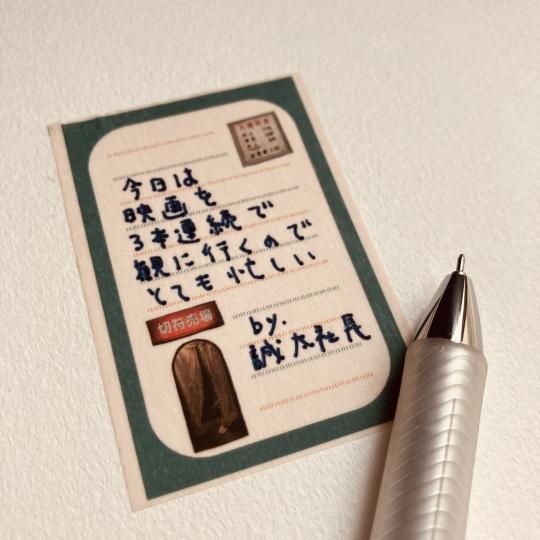 入場料金
今日は
映画を
3本連続で
観に行くので
とても忙しい
切符売場
by.
誠太社長